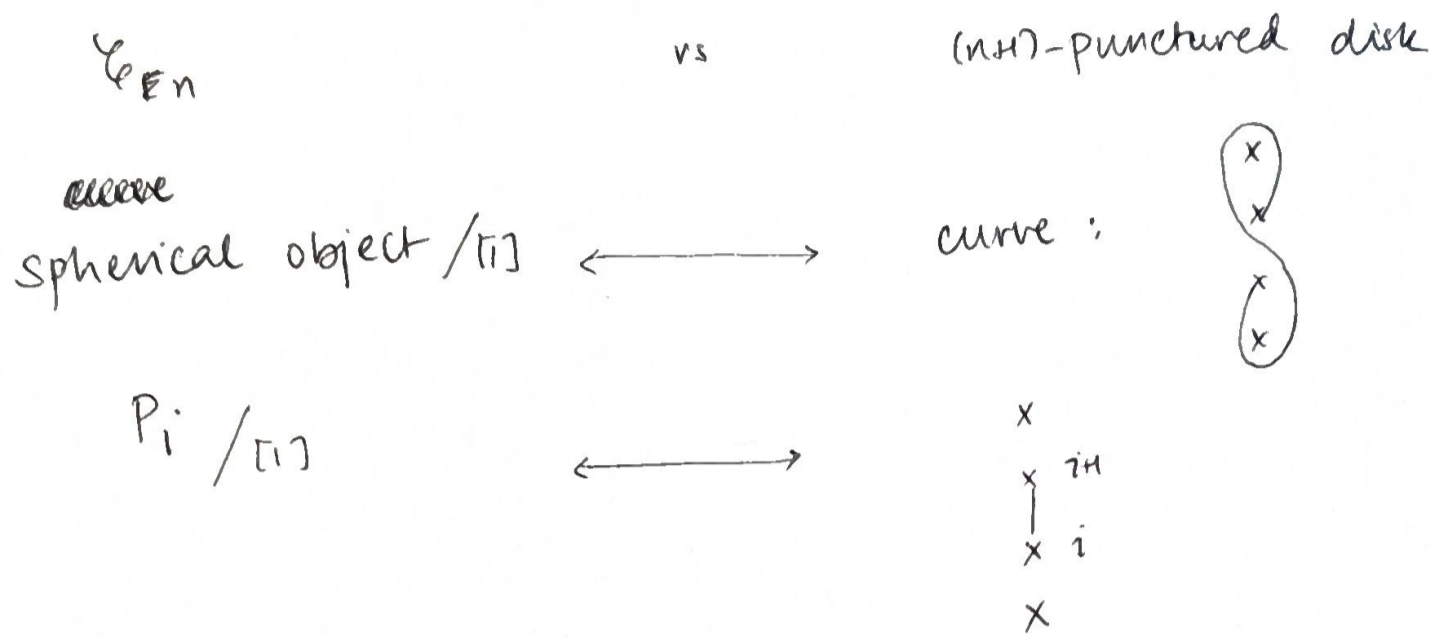 𝒞En vs (n+1)-punctured disk
spherical object /[1] ⟷ curve :
x
x
x
x
Pi /[1] ⟷
x
x i+1
x i
x